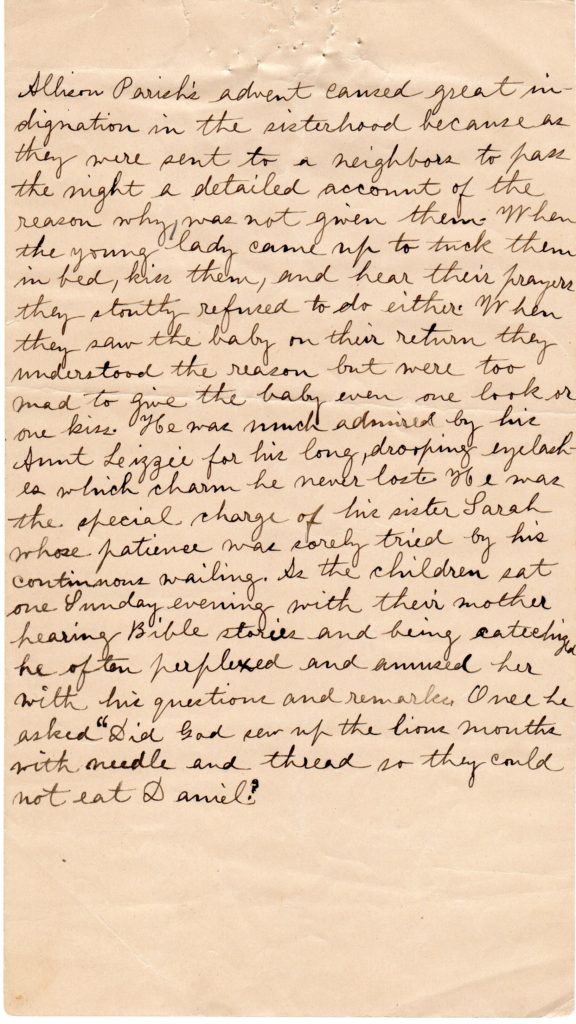 Allison Parish's advent caused great in-
dignation in the sisterhood because as
they were sent to a neighbors to pass
the night a detailed account of the
reason why, was not given them. When
the young lady came up to tuck them
in bed, kiss them, and hear their prayers
they stoutly refused to do either. When
they saw the baby on their return they
understood the reason but were too
mad to give the baby even one look or
one kiss. He was much admired by his
Aunt Leizzie for his long, drooping eyelash-
es which charm he never lost. He was
the special charge of his sister Sarah
whose patience was sorely tried by his
continuous wailing. As the children sat
one Sunday evening with their mother
hearing Bible stories and being catechized
he often perplexed and amused her
with his questions and remarks. Once he
asked "Did God sew up the lions mouths
with needle and thread so they could
not eat Daniel?